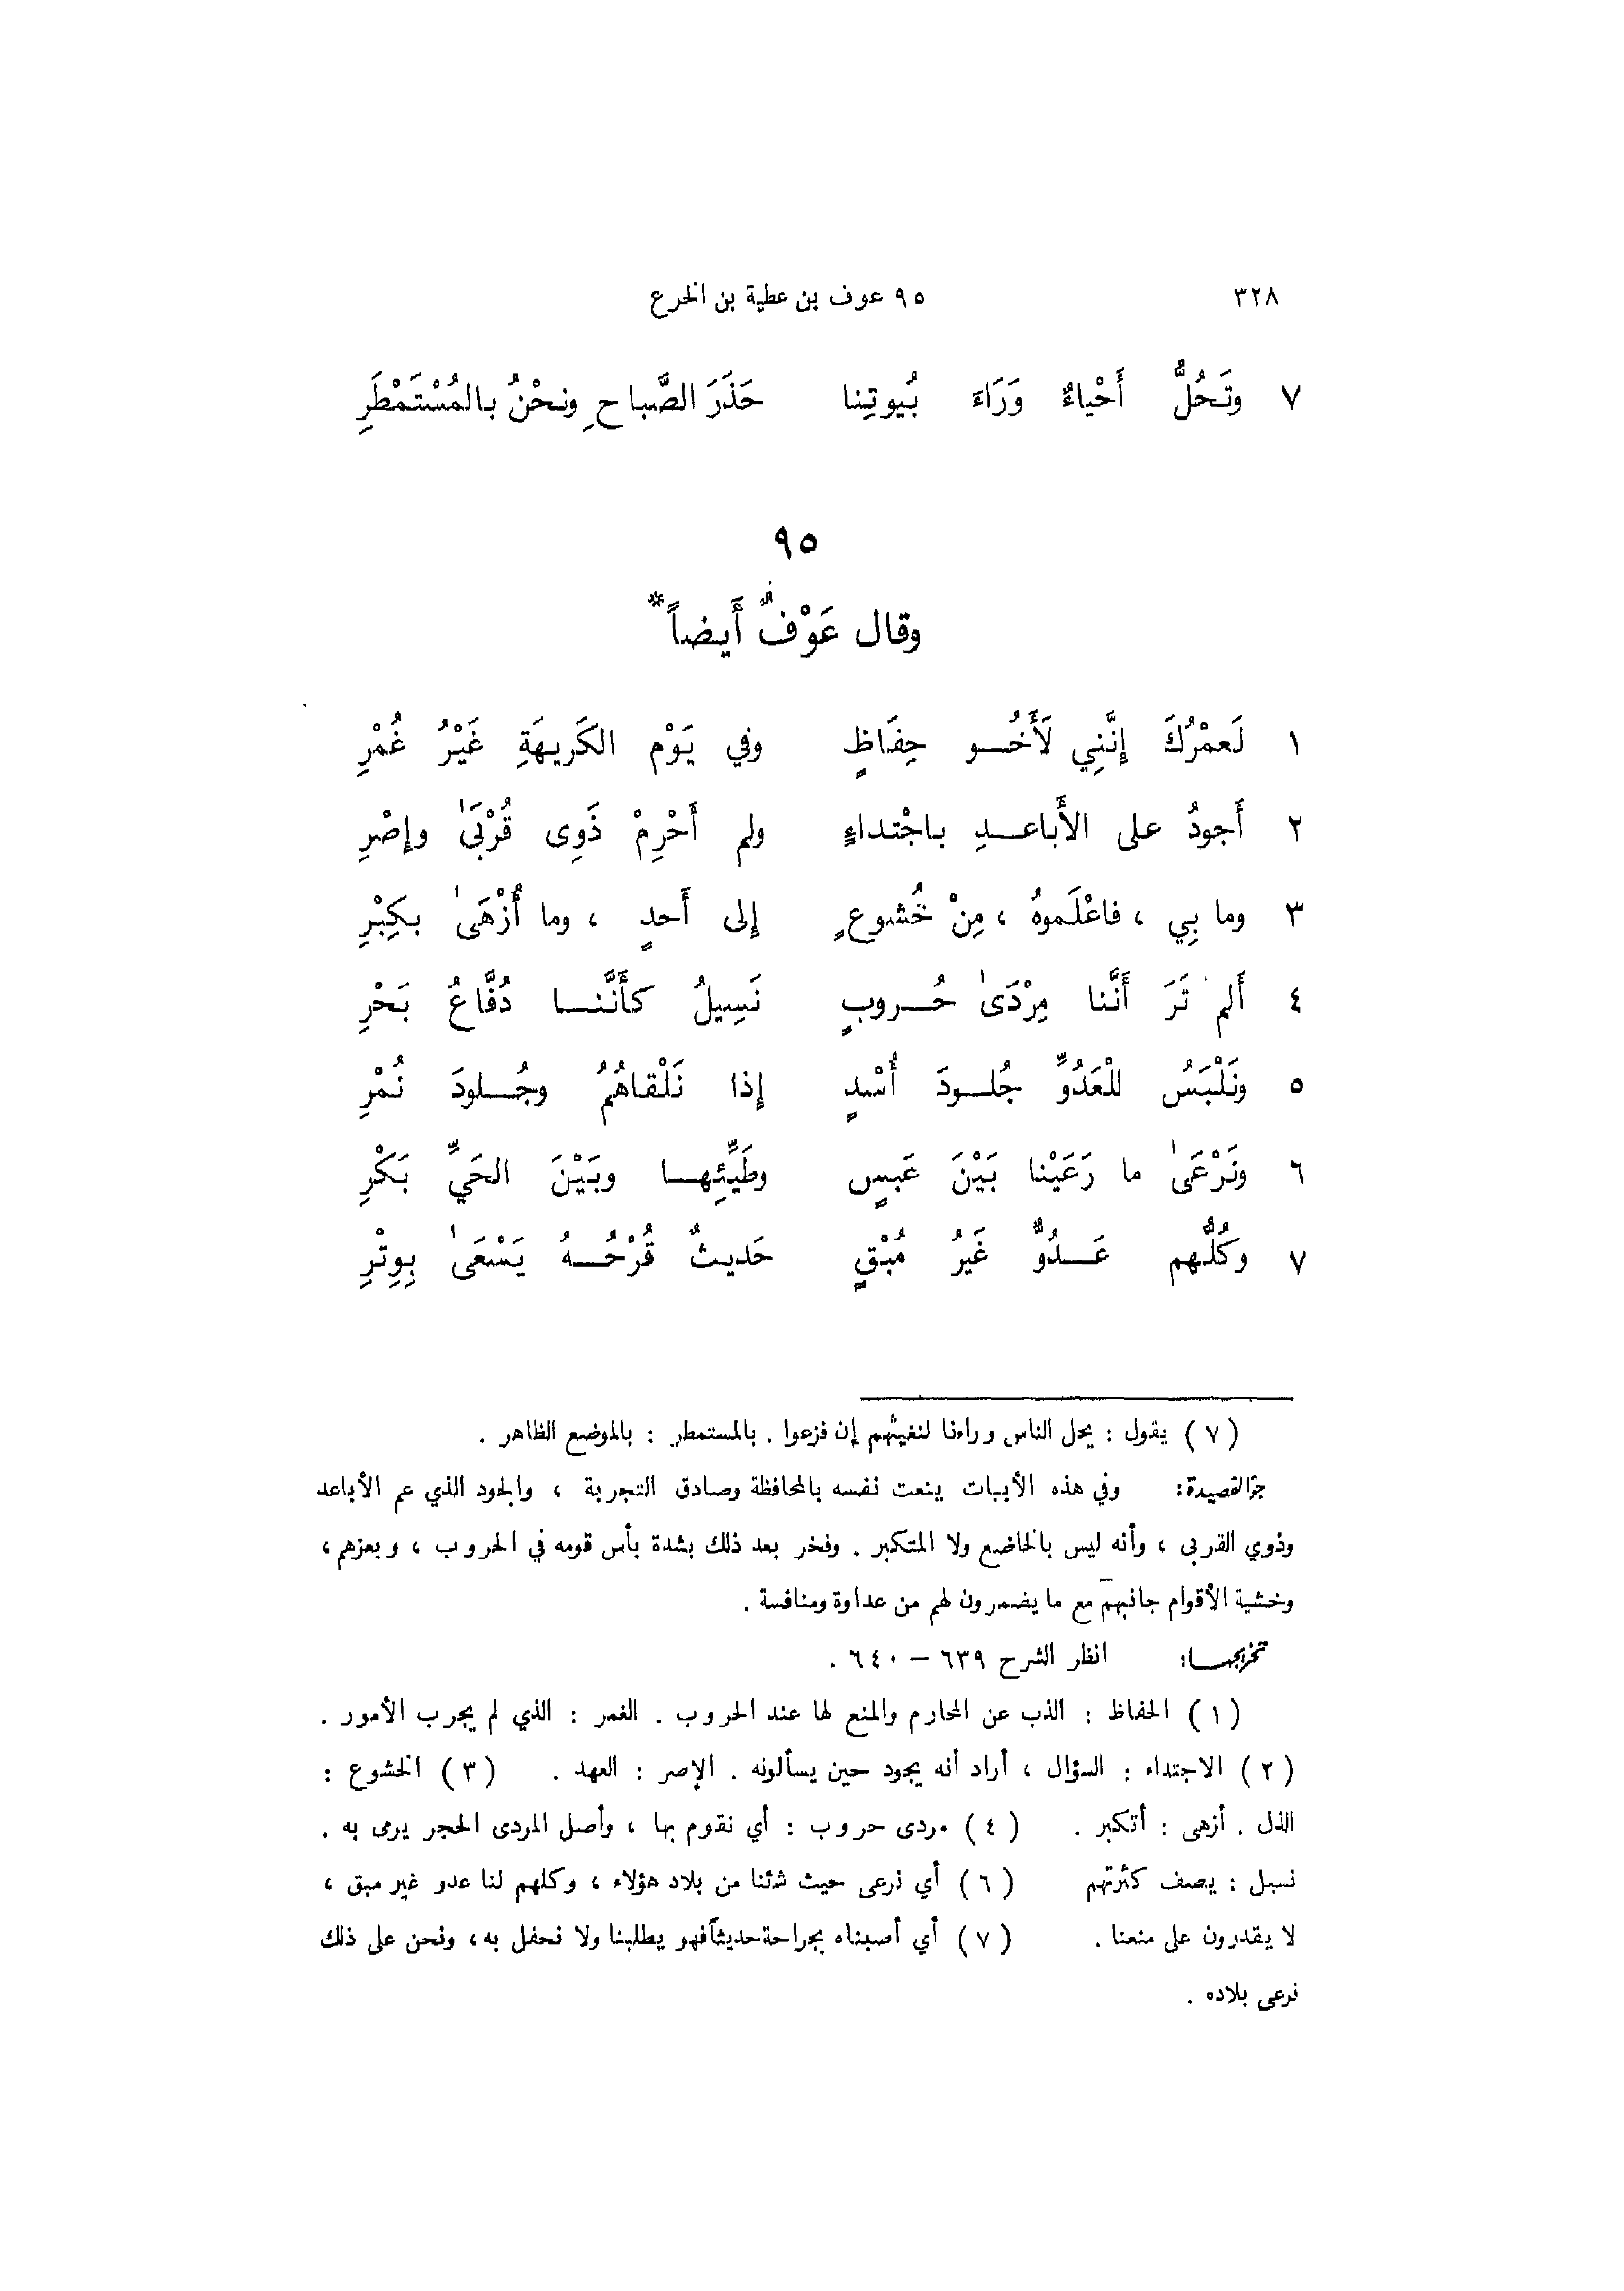 ٣٢٨ ٩٥ عوف بن عطية بن الخرع
٧ وتَحُلُّ أَحْياءٌ وَرَاءَ بُيوتِنا حَذَرَ الصَّباحِ ونحْنُ بالمُسْتَمْطَرِ
٩٥
وقال عَوْفٌ أَيضاً*
١ لَعمْرُكَ إِنَّنِي لَأَخُو حِفَاظٍ وفي يَوْم الكَريهَةِ غَيْرُ غُمْرِ
٢ أَجودُ على الأَباعدِ باجْتداءٍ ولم أَحْرِمْ ذَوِى قُرْبَىٰ وإصْرِ
٣ وما بِي ، فاعْلَموهُ ، مِنْ خُشوعٍ إلى أَحدٍ ، وما أُزْهَىٰ بكِبْرِ
٤ أَلم تَرَ أَنَّنا مِرْدَىٰ حُروبٍ نَسِيلُ كأَنَّنا دُفَّاعُ بَحْرِ
٥ ونَلْبَسُ للْعَدُوِّ جُلودَ أُسْدٍ إذا نَلْقاهُمُ وجُلودَ نُمْرِ
٦ ونَرْعَىٰ ما رَعَيْنا بَيْنَ عَبسٍ وطَيِّئِها وبَيْنَ الحَيِّ بَكْرِ
٧ وكُلُّهم عَدُوٌّ غَيرُ مُبْقٍ حَديثٌ قُرْحُهُ يَسْعَىٰ بِوِتْرِ
( ٧ ) يقول : يحل الناس وراءنا لنغيثهم إن فزعوا . بالمستمطر : بالموضع الظاهر .
جوّ القصيدة: وفي هذه الأبيات ينعت نفسه بالمحافظة وصادق التجربة ، والجود الذي عم الأباعد
وذوي القربى ، وأنه ليس بالخاضع ولا المتكبر . وفخر بعد ذلك بشدة بأس قومه في الحروب ، وبعزهم ،
وخشية الأقوام جانبهم مع ما يضمرون لهم من عداوة ومنافسة .
تخريجها: انظر الشرح ٦٣٩ – ٦٤٠ .
( ١ ) الحفاظ : الذب عن المحارم والمنع لها عند الحروب . الغمر : الذي لم يجرب الأمور .
( ٢ ) الاجتداء : السؤال ، أراد أنه يجود حين يسألونه . الإصر : العهد . ( ٣ ) الخشوع :
الذل . أزهى : أتكبر . ( ٤ ) مردى حروب : أي نقوم بها ، وأصل المردى الحجر يرمى به .
نسيل : يصف كثرتهم ( ٦ ) أي نرعى حيث شئنا من بلاد هؤلاء ، وكلهم لنا عدو غير مبق ،
لا يقدرون على منعنا . ( ٧ ) أي أصبناه بجراحة حديثاً فهو يطلبنا ولا نحفل به ، ونحن على ذلك
نرعى بلاده .